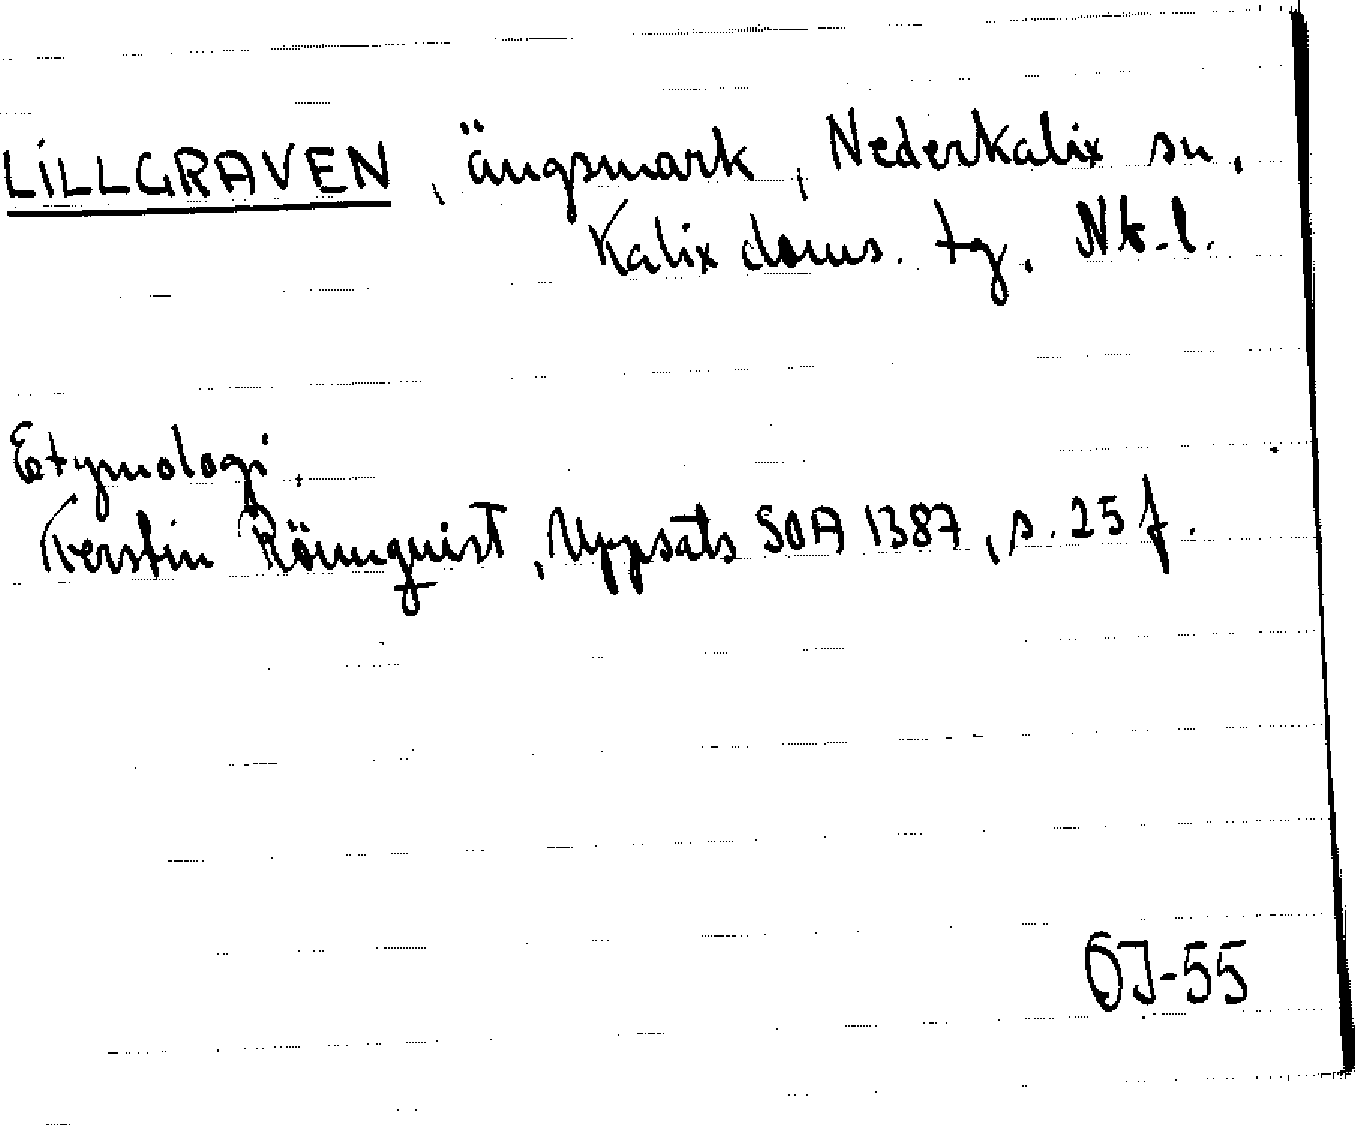 LILLGRAVEN, ängsmark, Nederkalix sn,
Kalix doms. tg, Nb.l.
Etymologi.
Kerstin Rönnquist, Uppsats SOA 1387, s. 25 f.
OJ-55